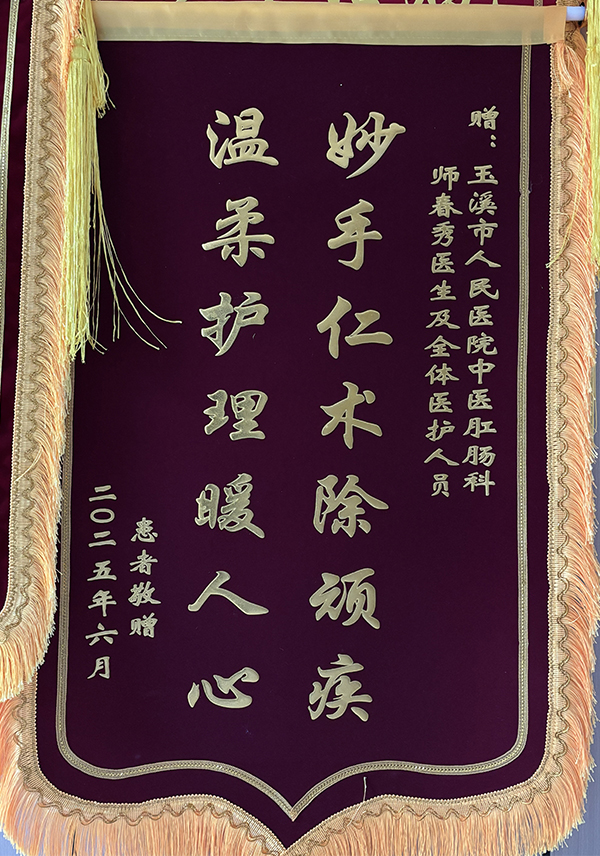 赠：玉溪市人民医院中医肛肠科
师春秀医生及全体医护人员
妙手仁术除顽疾
温柔护理暖人心
患者敬赠
二〇二五年六月